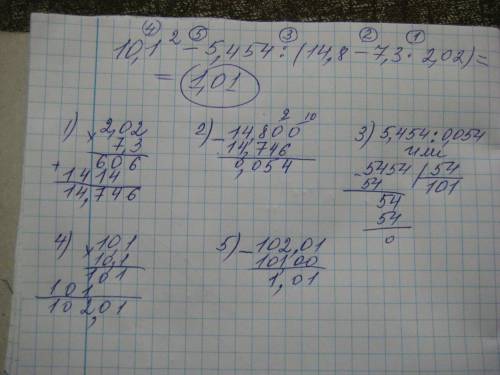 ④ ⑤ ③ ② ①
10,1² - 5,454 : (14,8 - 7,3 · 2,02) =
= 1,01
1) × 2,02
7,3
606
+ 1414
14,746
2) - 14,800
2 10
14,746
0,054
3) 5,454 : 0,054
или
- 5454 | 54
54 101
54
54
0
4) × 10,1
10,1
101
101
102,01
5) - 102,01
101,00
1,01